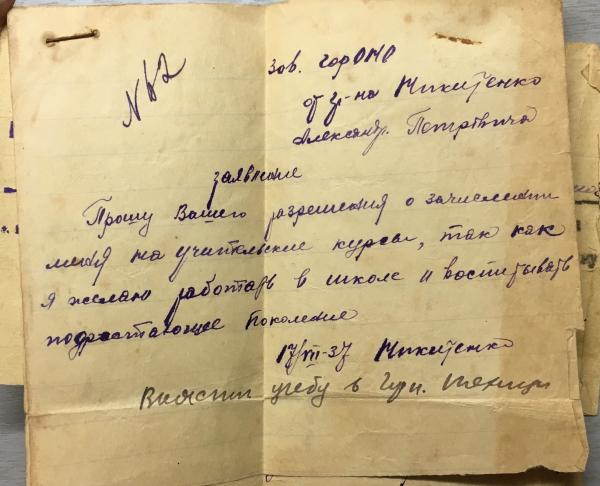 № 62
Зав. горОНО
от гр-на Никитенко
Александр. Петровича
заявление
Прошу Вашего разрешения о зачислении
меня на учительские курсы, так как
я желаю работать в школе и воспитывать
подрастающее поколение
17/VII-37 Никитенко
учебу в